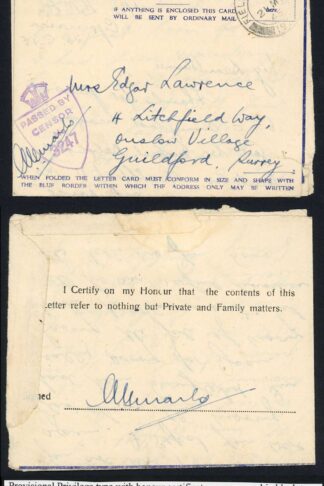 IF ANYTHING IS ENCLOSED THIS CARD
WILL BE SENT BY ORDINARY MAIL
FIEL
PASSED BY
CENSOR
3247
Mrs Edgar Lawrence
4 Litchfield Way,
Onslow Village
Guildford, Surrey
WHEN FOLDED THE LETTER CARD MUST CONFORM IN SIZE AND SHAPE WITH
THE BLUE BORDER WITHIN WHICH THE ADDRESS ONLY MAY BE WRITTEN
I Certify on my Honour that the contents of this
Letter refer to nothing but Private and Family matters.
ned